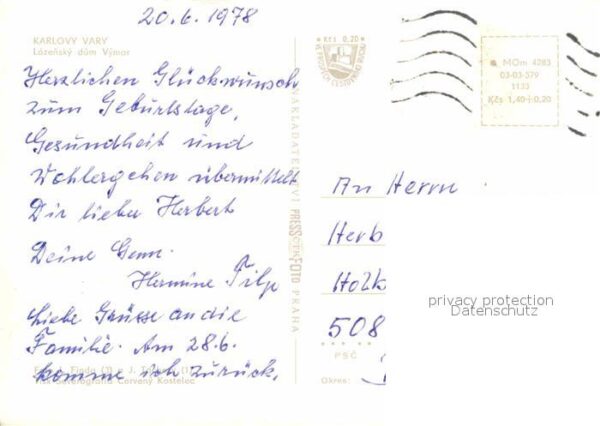 20.6.1978
KARLOVY VARY
Lázeňský dům Výmar
Herzlichen Glückwunsch
zum Geburtstage,
Gesundheit und
Wohlergehen übermittelt
Dir lieber Herbert
Deine
Hermine
Liebe Grüsse an die
Familie. Am 28.6.
komme ich zurück.
Červený Kostelec
NAKLADATELSTVÍ PRESSFOTO PRAHA
Kčs 0,20
MOm 4283
03-03-579
1133
Kčs 1,40+0,20
An Herrn
Herb
Holk
508
privacy protection
Datenschutz
PSČ
Okres: